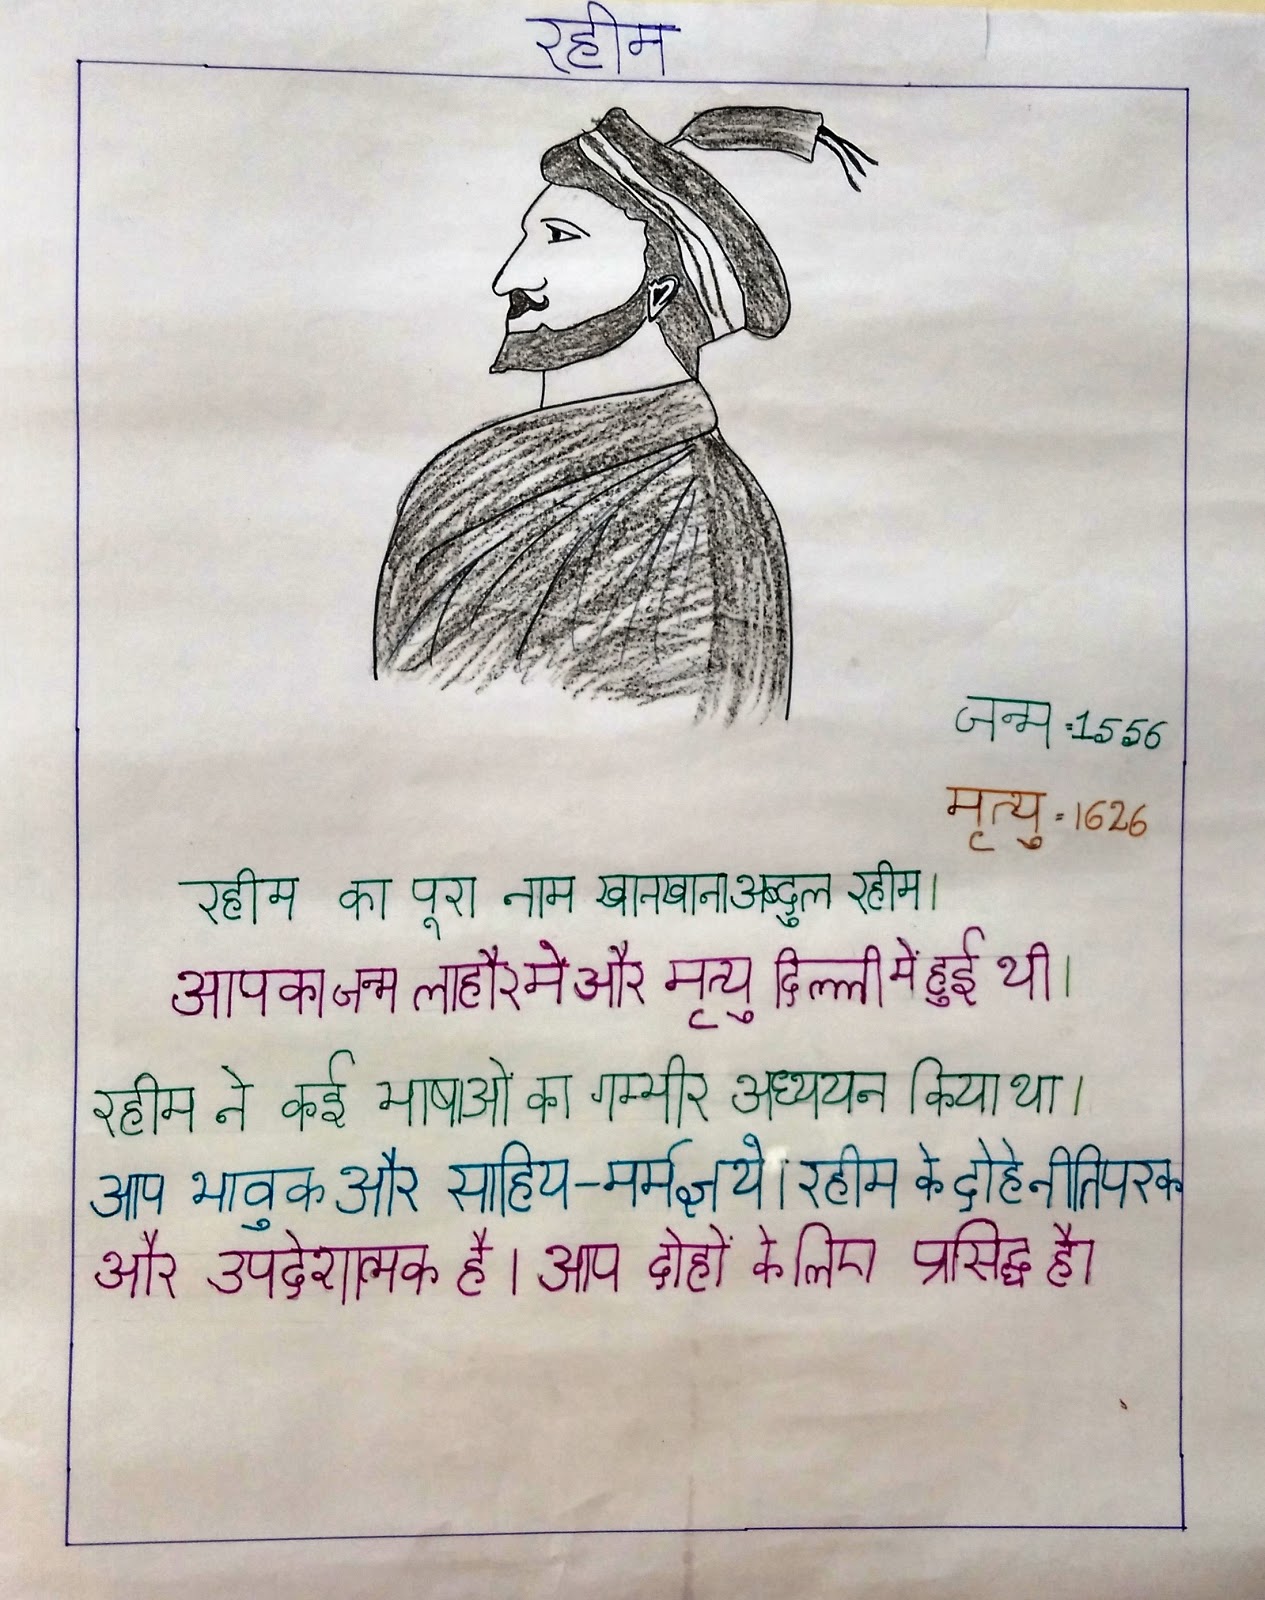 रहीम
जन्म :- 1556
मृत्यु = 1626
रहीम का पूरा नाम खानखाना अब्दुल रहीम।
आपका जन्म लाहौर में और मृत्यु दिल्ली में हुई थी।
रहीम ने कई भाषाओं का गम्भीर अध्ययन किया था।
आप भावुक और साहिय-मर्मज्ञ थे। रहीम के दोहे नीतिपरक
और उपदेशात्मक है। आप दोहों के लिए प्रसिद्ध है।